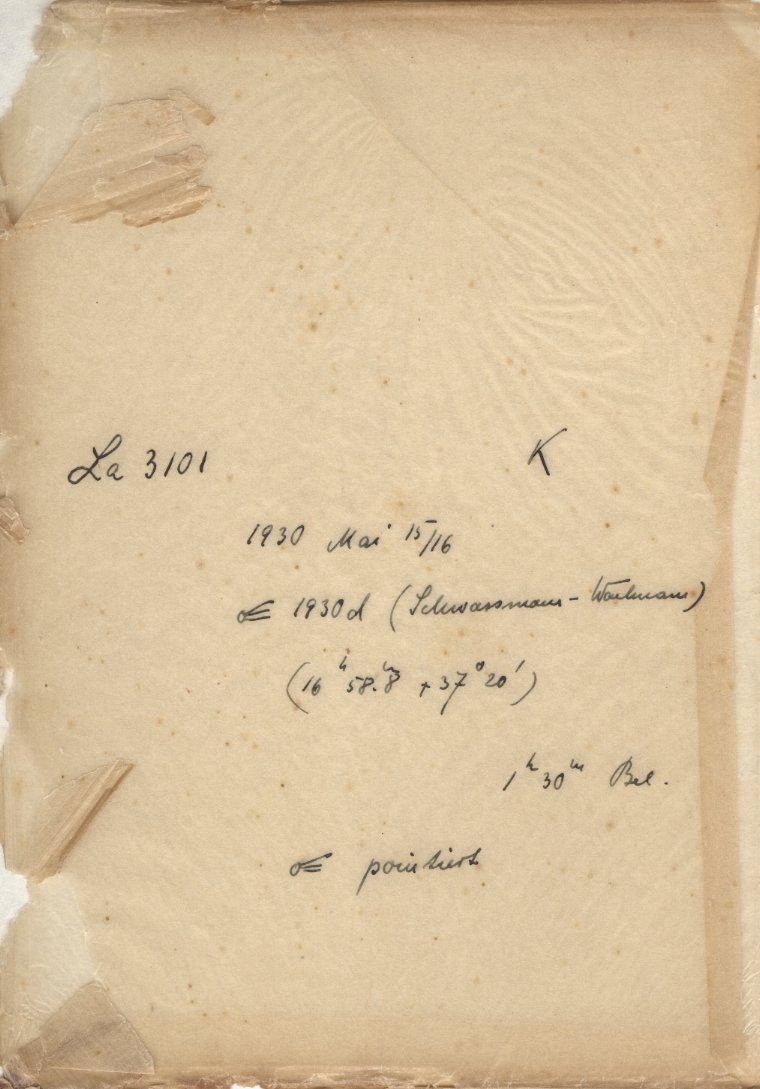 La 3101 K
1930 Mai 15/16
☄ 1930d (Schwassmann-Wachmann)
(16ʰ 58.ᵐ8 +37° 20')
1ʰ 30ᵐ Bel.
☄ pointiert